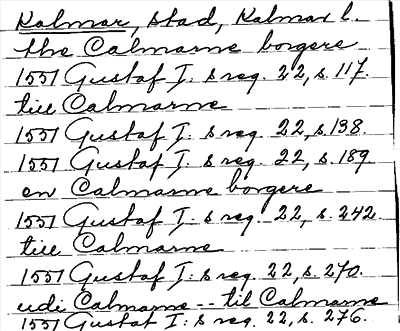 Kalmar, stad, Kalmar l.
the Calmarne borgere
1551 Gustaf I: s reg. 22, s. 117.
till Calmarne
1551 Gustaf I: s reg. 22, s. 138.
1551 Gustaf I: s reg. 22, s. 189
en Calmarne borgere
1551 Gustaf I: s reg. 22, s. 242.
till Calmarne
1551 Gustaf I: s reg. 22, s. 270.
udi Calmarne -- til Calmarne
1551 Gustaf I: s reg. 22, s. 276.